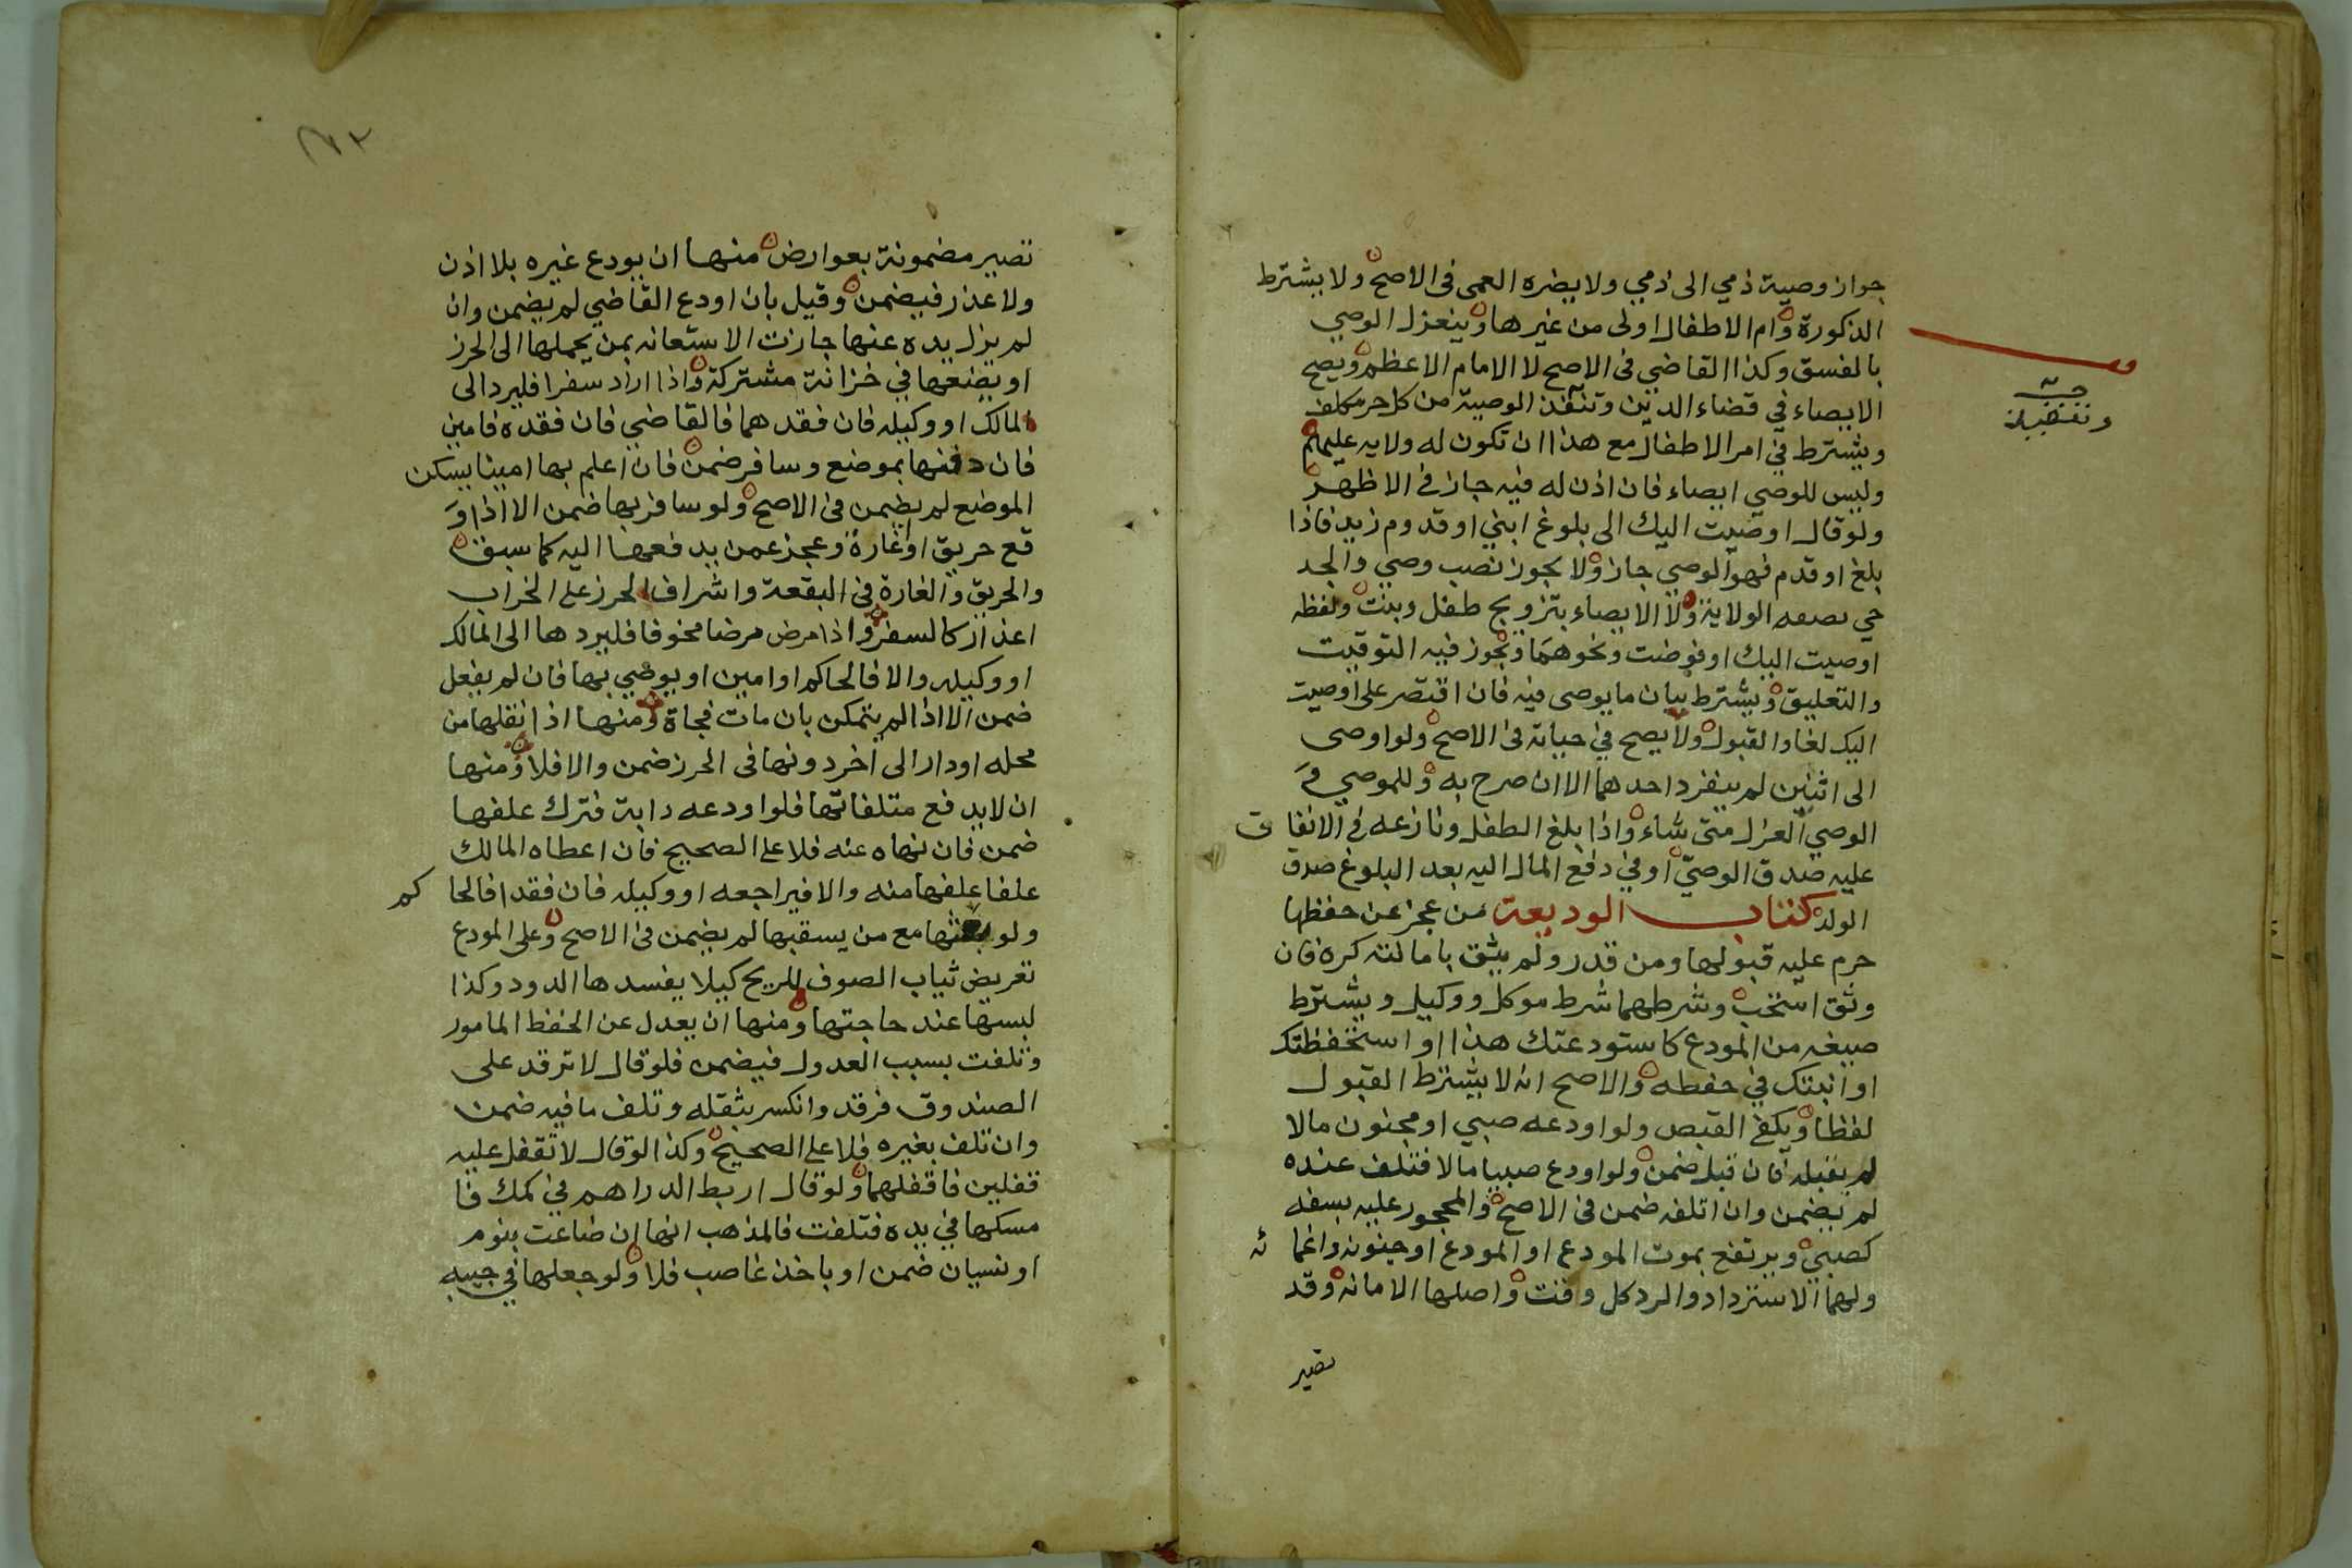 جواز وصية ذمي الى ذمي ولا يضره العمى فى الاصح ولا يشترط
الذكورة وام الاطفال اولى من غيرها وينعزل الوصي
بالفسق وكذا القاضي فى الاصح لا الامام الاعظم ويصح
الايصاء في قضاء الدين وتنفذ الوصية من كل حر مكلف
ويشترط في امر الاطفال مع هذا ان تكون له ولايه عليهم
وليس للوصي ايصاء فان اذن له فيه جاز فى الاظهر
ولو قال اوصيت اليك الى بلوغ ابني او قدوم زيد فاذا
بلغ او قدم فهو الوصي جاز ولا يجوز نصب وصي والجد
حي بصفه الولاية ولا الايصاء بتزويج طفل وبنت ولفظه
اوصيت اليك او فوضت ونحوهما ويجوز فيه التوقيت
والتعليق ويشترط بيان ما يوصى فيه فان اقتصر على اوصيت
اليك لغا والقبول ولا يصح في حياته فى الاصح ولو اوصى
الى اثنين لم ينفرد احدهما الا ان صرح به وللموصي و
الوصي العزل متى شاء واذا بلغ الطفل ونازعه فى الانفاق
عليه صدق الوصي او في دفع المال اليه بعد البلوغ صدق
الولد كتاب الوديعة من عجز عن حفظها
حرم عليه قبولها ومن قدر ولم يثق بامانته كره فان
وثق استحب وشرطهما شرط موكل ووكيل ويشترط
صيغه من المودع كاستودعتك هذا او استحفظتك
او انبتك في حفظه والاصح انه لا يشترط القبول
لفظا ويكفي القبض ولو اودعه صبي او مجنون مالا
لم يقبله فان قبل ضمن ولو اودع صبيا مالا فتلف عنده
لم يضمن وان اتلفه ضمن فى الاصح والمحجور عليه بسفه
كصبي ويرتفع بموت المودع او المودع او جنونه واغمائه
ولهما الاسترداد والرد كل وقت واصلها الامانه وقد
تصير
تصير مضمونة بعوارض منها ان يودع غيره بلا اذن
ولا عذر فيضمن وقيل بان اودع القاضي لم يضمن وان
لم يزل يده عنها جازت الاستعانه بمن يحملها الى الحرز
او يضعها في خزانة مشتركة واذا اراد سفرا فليرد الى
المالك او وكيله فان فقدهما فالقاضي فان فقده فامين
فان دفنها بموضع وسافر ضمن فان اعلم بها امينا يسكن
الموضع لم يضمن فى الاصح ولو سافر بها ضمن الا اذا و
قع حريق او غارة وعجز عمن يدفعها اليه كما سبق
والحريق والغارة في البقعة واشراف الحرز على الخراب
اعذار كالسفر واذا مرض مرضا مخوفا فليردها الى المالك
او وكيله والا فالحاكم او امين او يوصي بها فان لم يفعل
ضمن الا اذا لم يتمكن بان مات فجاة ومنها اذا نقلها من
محله او دار الى اخر دونها فى الحرز ضمن والا فلا ومنها
ان لا يدفع متلفاتها فلو اودعه دابة فترك علفها
ضمن فان نهاه عنه فلا على الصحيح فان اعطاه المالك
علفا علفها منه والا فيراجعه او وكيله فان فقدا فالحاكم
ولو بعثها مع من يسقيها لم يضمن فى الاصح وعلى المودع
تعريض ثياب الصوف للريح كيلا يفسدها الدود وكذا
لبسها عند حاجتها ومنها ان يعدل عن الحفظ المامور
وتلفت بسبب العدول فيضمن فلو قال لا ترقد على
الصندوق فرقد وانكسر بثقله وتلف ما فيه ضمن
وان تلف بغيره فلا على الصحيح وكذا لو قال لا تقفل عليه
قفلين فاقفلهما ولو قال اربط الدراهم في كمك فا
مسكها في يده فتلفت فالمذهب انها ان ضاعت بنوم
او نسيان ضمن او باخذ غاصب فلا ولو جعلها في جيبه